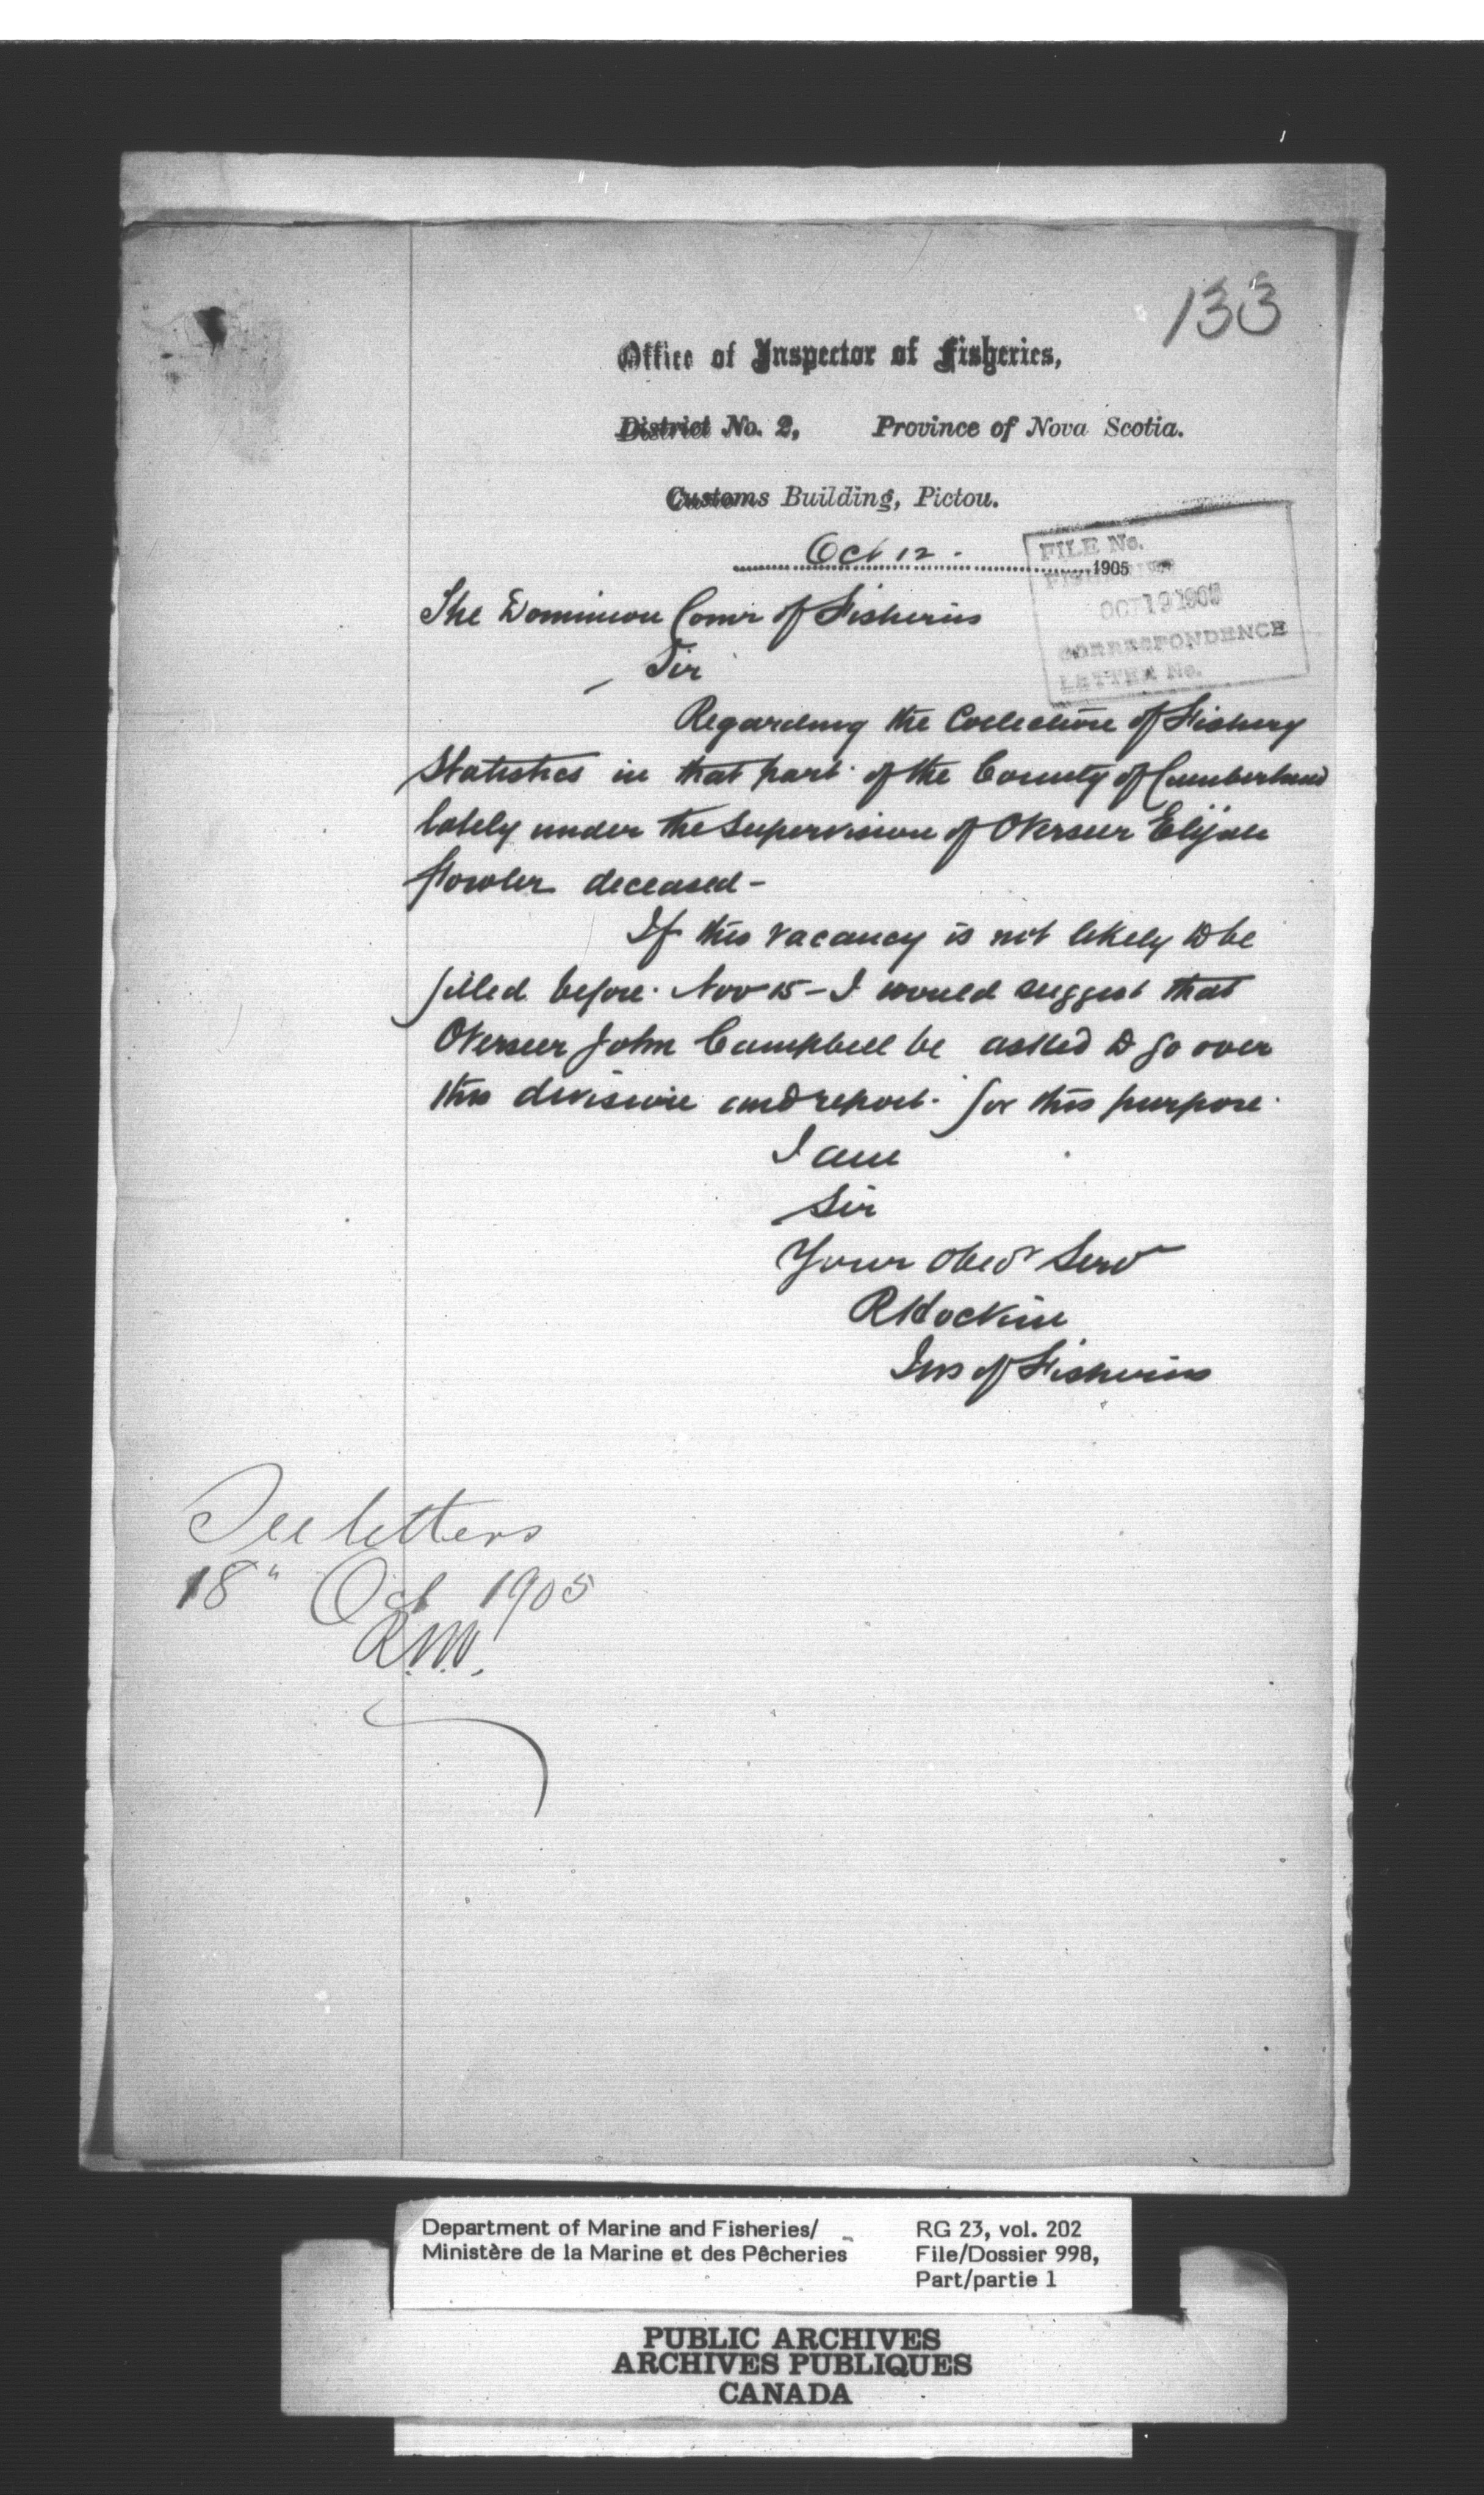 133
Office of Inspector of Fisheries,
District No. 2, Province of Nova Scotia.
Customs Building, Pictou.
Oct 12 - 1905
FILE No.
OCT 19 1905
CORRESPONDENCE
LETTER No.
The Dominion Comr of Fisheries
Sir
Regarding the Collection of Fishery
Statistics in that part of the County of Cumberland
lately under the Supervision of Overseer Elijah
Fowler deceased -
If this vacancy is not likely to be
filled before Nov 15 - I would suggest that
Overseer John Campbell be asked to go over
this division and report for this purpose.
I am
Sir
Your Obed Serv
R Hockin
Ins of Fisheries
See letters
18" Oct 1905
R.W.
Department of Marine and Fisheries/
Ministère de la Marine et des Pêcheries
RG 23, vol. 202
File/Dossier 998,
Part/partie 1
PUBLIC ARCHIVES
ARCHIVES PUBLIQUES
CANADA